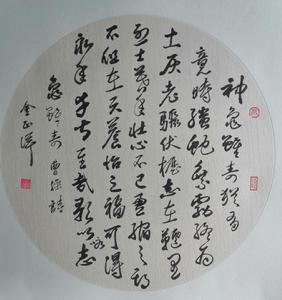 神龜雖壽猶有
竟時騰蛇乘霧終為
土灰老驥伏櫪志在千里
烈士暮年壯心不已盈縮之期
不但在天養怡之福可得
永年幸甚至哉歌以詠志
龜雖壽 曹操詩